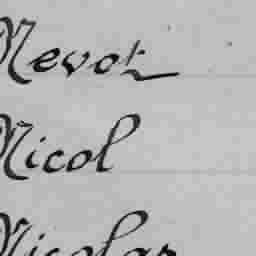 Nevot
Nicol
Nicolas